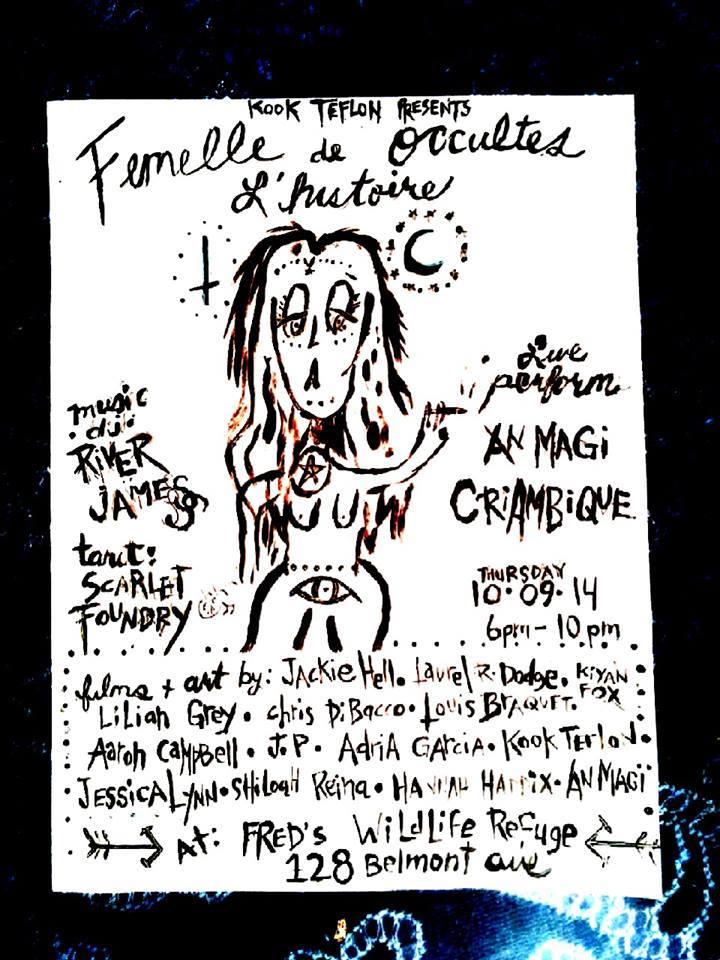 KOOK TEFLON PRESENTS
Femelle de occultes
L'histoire
music
dj:
RiVER
JAMES
tarot:
SCARLET
FOUNDRY
Live
perform
AN MAGi
CRiAMBiQUE
THURSDAY
10·09·14
6pm - 10pm
films + art by: JACKiE Hell. Laurel R. Dodge. KiYAN FOX
LiLiAn GReY. chris DiBacco. Louis BRAQUET.
AAron CAMPBell. J.P. ADRiA GArciA. Kook TeFLoN.
JESSiCA LYNN. SHiLoaH ReinA. HANNAH HAttiX. AN MAGi
At: FRED'S WiLDLiFE ReFuge
128 Belmont ave